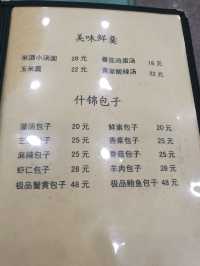 美味鲜羹
米酒小汤圆 28 元 番茄鸡蛋汤 16 元
玉米羹 22 元 黄家酸辣汤 32 元
什锦包子
灌汤包子 20 元 鲜蜜包子 20 元
25 元 香素包子 25 元
麻辣包子 25 元 香菇包子 25 元
虾仁包子 28 元 羊肉包子 28 元
极品蟹黄包子 48 元 极品鲍鱼包子 48 元